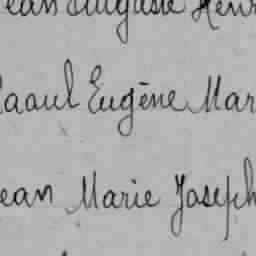 ean Auguste Henr
Raoul Eugène Mar
ean Marie Joseph